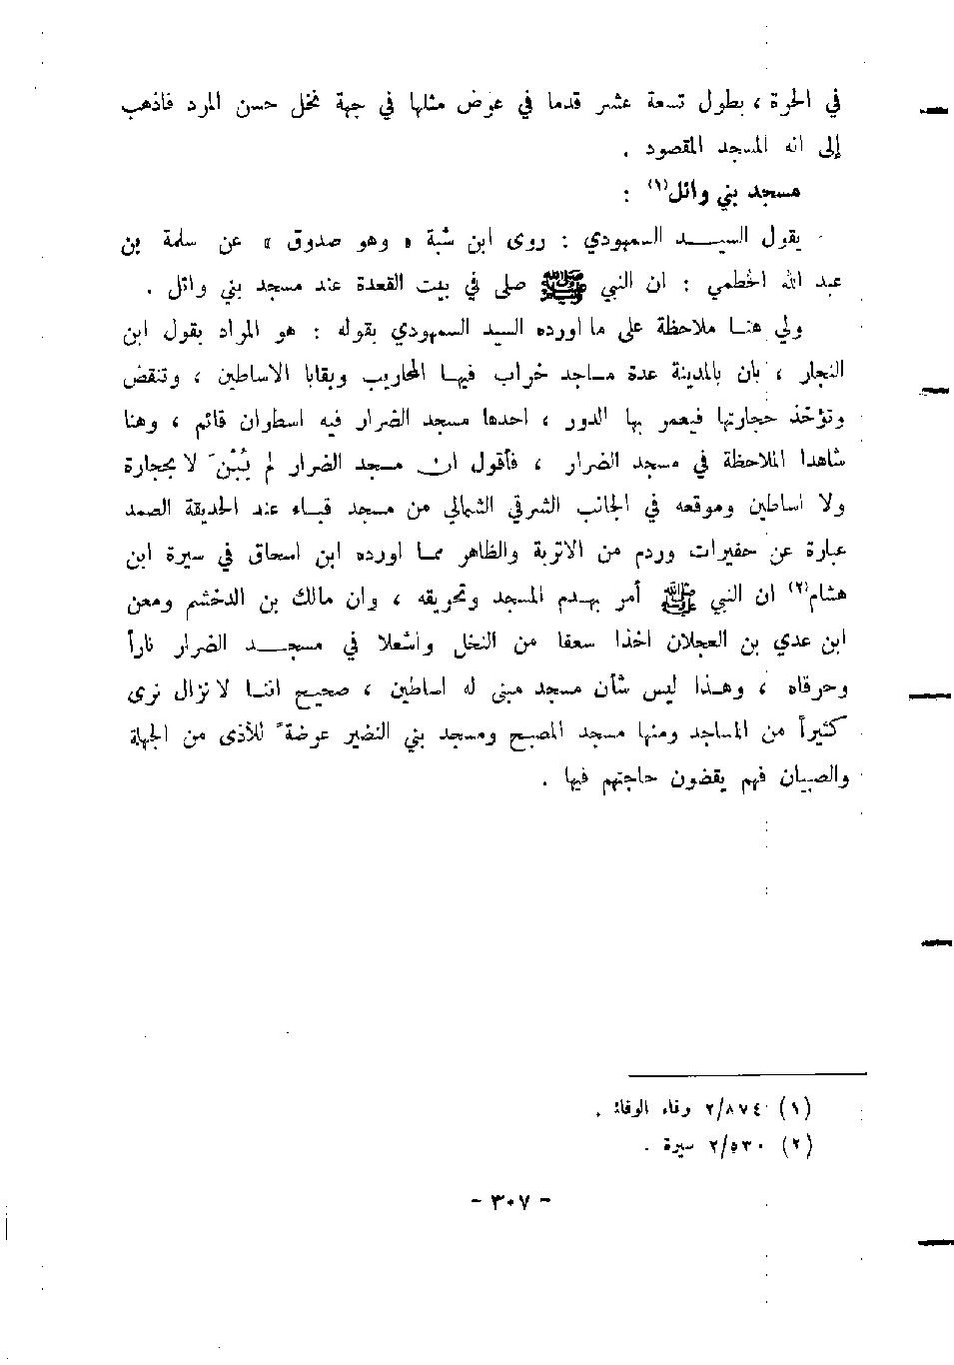 في الحرة ، بطول تسعة عشر قدما في عرض مثلها في جهة نخل حسن المرد فاذهب
إلى انه المسجد المقصود .
مسجد بني وائل(١) :
يقول السيـــد السمهودي : روى ابن شبة « وهو صدوق » عن سلمة بن
عبد الله الخطمي : ان النبي ﷺ صلى في بيت القعدة عند مسجد بني وائل .
ولي هنـا ملاحظة على ما اورده السيد السمهودي بقوله : هو المراد بقول ابن
النجار ، بان بالمدينة عدة مساجد خراب فيهـا المحاريب وبقايا الاساطين ، وتنقض
وتؤخذ حجارتها فيعمر بها الدور ، احدها مسجد الضرار فيه اسطوان قائم ، وهنا
شاهدا الملاحظة في مسجد الضرار ، فأقول ان مسجد الضرار لم يُبْنَ لا بحجارة
ولا اساطين وموقعه في الجانب الشرقي الشمالي من مسجد قبـاء عند الحديقة الصمد
عبارة عن حفيرات وردم من الاتربة والظاهر ممـا اورده ابن اسحاق في سيرة ابن
هشام(٢) ان النبي ﷺ أمر بهـدم المسجد وتحريقه ، وان مالك بن الدخشم ومعن
ابن عدي بن العجلان اخذا سعفا من النخل واشعلا في مسجـــد الضرار ناراً
وحرقاه ، وهـذا ليس شأن مسجد مبنى له اساطين ، صحيح اننـا لا نزال نرى
كثيراً من المساجد ومنها مسجد المصبح ومسجد بني النضير عرضةً للأذى من الجهلة
والصبيان فهم يقضون حاجتهم فيها .
(١) ٢/٨٧٤ وفاء الوفاء .
(٢) ٢/٥٣٠ سيرة .
- ٣٠٧ -